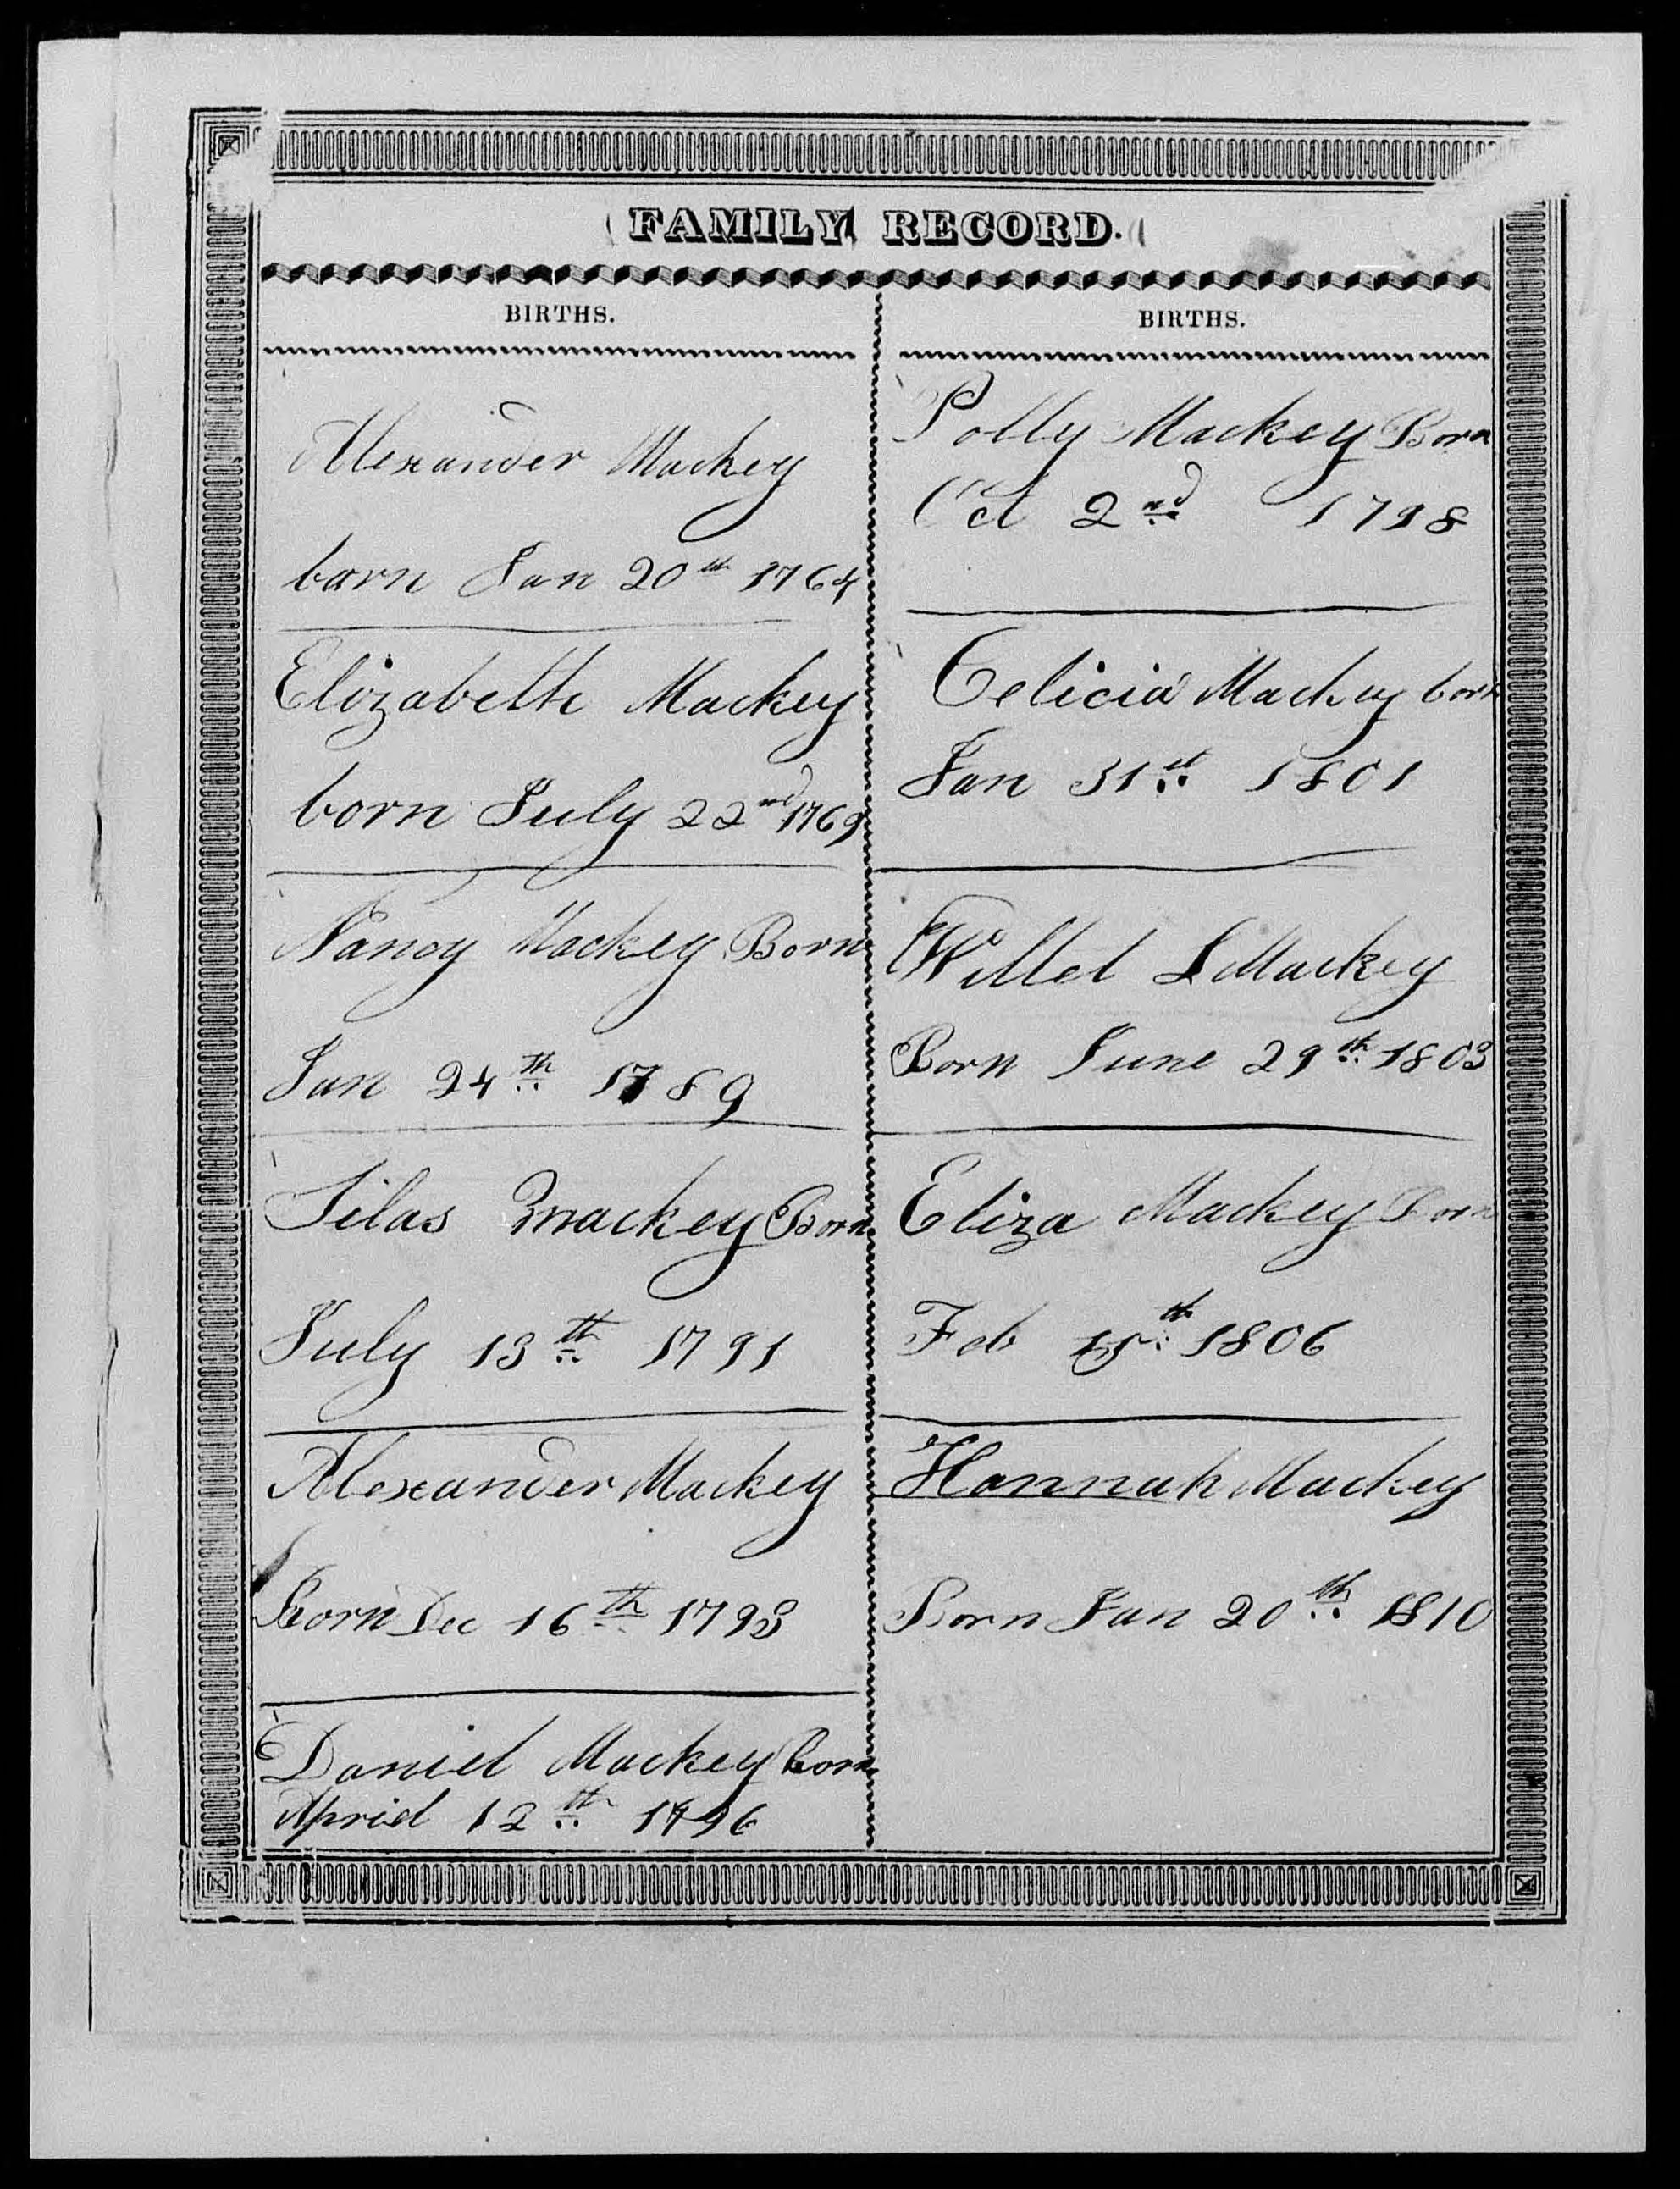 FAMILY RECORD.
BIRTHS.
Alexander Mackey
born Jan 20th 1764
Elizabeth Mackey
born July 22nd 1769
Nancy Mackey Born
Jan 24th 1789
Silas Mackey Born
July 13th 1791
Alexander Mackey
Born Dec 16th 1793
Daniel Mackey born
Apriel 12th 1796
BIRTHS.
Polly Mackey Born
Oct 2nd 1798
Celicia Mackey born
Jan 31st 1801
Willet L Mackey
Born June 29th 1803
Eliza Mackey Born
Feb 15th 1806
Hannah Mackey
Born Jan 20th 1810